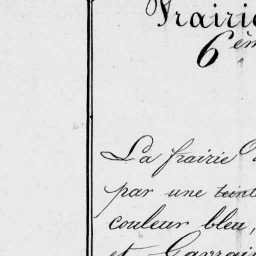 Prairie
6èm
La prairie
par une teint
couleur bleu,
et Gavrain